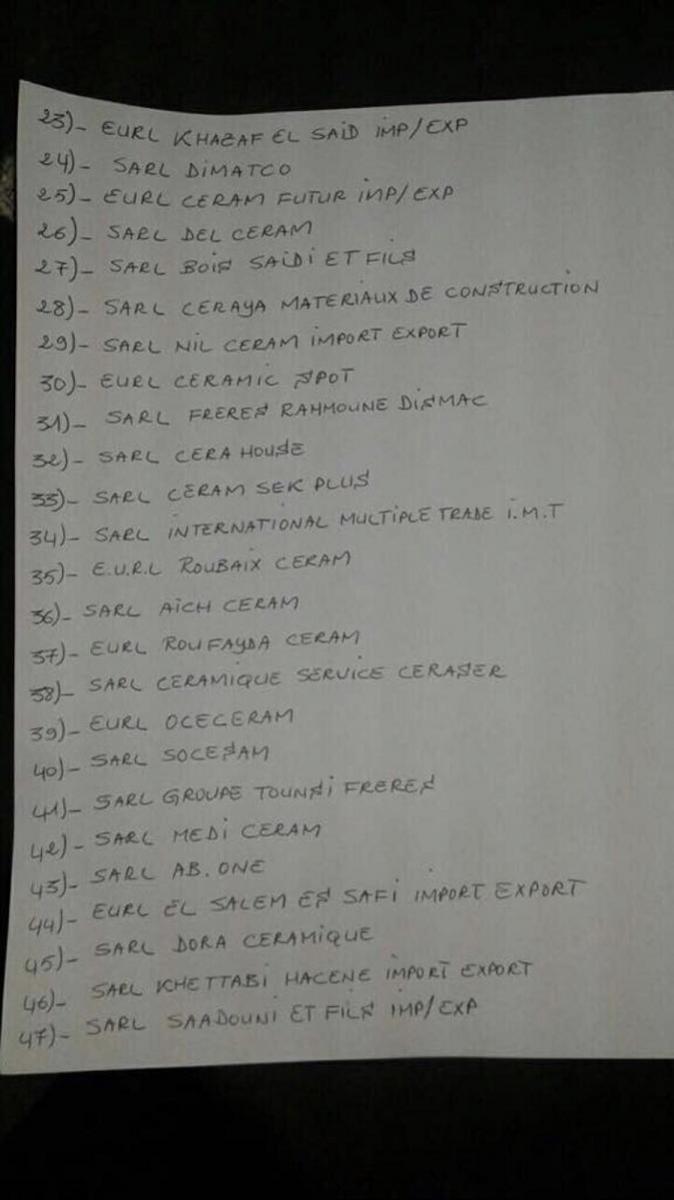 23)- EURL KHAZAF EL SAID IMP/EXP
24)- SARL DIMATCO
25)- EURL CERAM FUTUR IMP/EXP
26)- SARL DEL CERAM
27)- SARL BOIS SAIDI ET FILS
28)- SARL CERAYA MATERIAUX DE CONSTRUCTION
29)- SARL NIL CERAM IMPORT EXPORT
30)- EURL CERAMIC SPOT
31)- SARL FRERES RAHMOUNE DISMAC
32)- SARL CERA HOUSE
33)- SARL CERAM SEK PLUS
34)- SARL INTERNATIONAL MULTIPLE TRADE I.M.T
35)- E.U.R.L ROUBAIX CERAM
36)- SARL AICH CERAM
37)- EURL ROUFAYDA CERAM
38)- SARL CERAMIQUE SERVICE CERASER
39)- EURL OCECERAM
40)- SARL SOCESAM
41)- SARL GROUPE TOUNSI FRERES
42)- SARL MEDI CERAM
43)- SARL AB.ONE
44)- EURL EL SALEM ES SAFI IMPORT EXPORT
45)- SARL DORA CERAMIQUE
46)- SARL KHETTABI HACENE IMPORT EXPORT
47)- SARL SAADOUNI ET FILS IMP/EXP